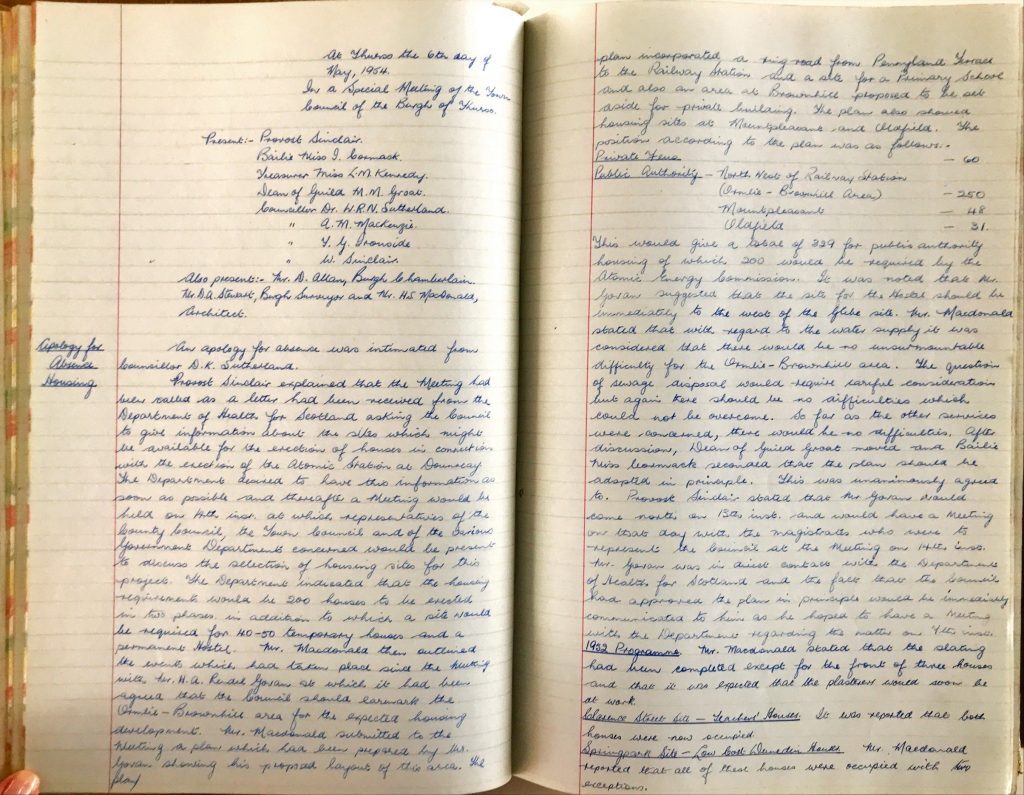 At Thurso the 6th day of
May, 1954.
In a Special Meeting of the Town
Council of the Burgh of Thurso.
Present:- Provost Sinclair.
Bailie Miss I. Cormack.
Treasurer Miss L.M. Kennedy.
Dean of Guild M.M. Groat.
Councillor Dr. W.R.N. Sutherland.
" A.M. Mackenzie.
" T.G. Ironside
" " W. Sinclair.
Also present:- Mr. D. Allan, Burgh Chamberlain.
Mr. D.A. Stewart, Burgh Surveyor and Mr. H.S. MacDonald,
Architect.
Apology for
Absence
An apology for absence was intimated from
Councillor D.K. Sutherland.
Housing
Provost Sinclair explained that the Meeting had
been called as a letter had been received from the
Department of Health for Scotland asking the Council
to give information about the sites which might
be available for the erection of houses in connection
with the erection of the Atomic Station at Dounreay.
The Department desired to have this information as
soon as possible and thereafter a Meeting would be
held on 14th inst. at which representatives of the
County Council, the Town Council and of the various
Government Departments concerned would be present
to discuss the selection of housing sites for this
project. The Department indicated that the housing
requirements would be 200 houses to be erected
in two phases in addition to which a site would
be required for 40-50 temporary houses and a
permanent Hostel. Mr. Macdonald then outlined
the events which had taken place since the Meeting
with Mr. H.A. Rendel Govan at which it had been
agreed that the Council should earmark the
Ormlie-Brownhill area for the expected housing
development. Mr. Macdonald submitted to the
Meeting a plan which had been prepared by Mr.
Govan showing his proposed layout of this area. The
plan
plan incorporated a ring road from Pennyland Terrace
to the Railway Station and a site for a Primary School
and also an area at Brownhill proposed to be set
aside for private building. The plan also showed
housing sites at Mountpleasant and Oldfield. The
position according to the plan was as follows:-
Private Feus - 60
Public Authority - North West of Railway Station
(Ormlie - Brownhill Area) - 250
Mountpleasant - 48
Oldfield - 31.
This would give a total of 329 for public authority
housing of which 200 would be required by the
Atomic Energy Commission. It was noted that Mr.
Govan suggested that the site for the Hostel should be
immediately to the west of the Glebe site. Mr. Macdonald
stated that with regard to the water supply it was
considered that there would be no unsurmountable
difficulty for the Ormlie-Brownhill area. The question
of sewage disposal would require careful consideration
but again there should be no difficulties which
could not be overcome. So far as the other services
were concerned, there would be no difficulties. After
discussion, Dean of Guild Groat moved and Bailie
Miss Cormack seconded that the plan should be
adopted in principle. This was unanimously agreed
to. Provost Sinclair stated that Mr Govan would
come north on 13th inst. and would have a Meeting
on that day with the magistrates who were to
represent the Council at the Meeting on 14th inst.
Mr. Govan was in direct contact with the Department
of Health for Scotland and the fact that the Council
had approved the plan in principle would be immediately
communicated to him as he hoped to have a Meeting
with the Department regarding the matter on 7th inst.
1952 Programme. Mr. Macdonald stated that the slating
had been completed except for the front of three houses
and that it was expected that the plasterers would soon be
at work.
Clarence Street Site - Teachers' Houses. It was reported that both
houses were now occupied.
Springpark Site - Low Cost Dunedin Houses Mr. Macdonald
reported that all of these houses were occupied with two
exceptions.